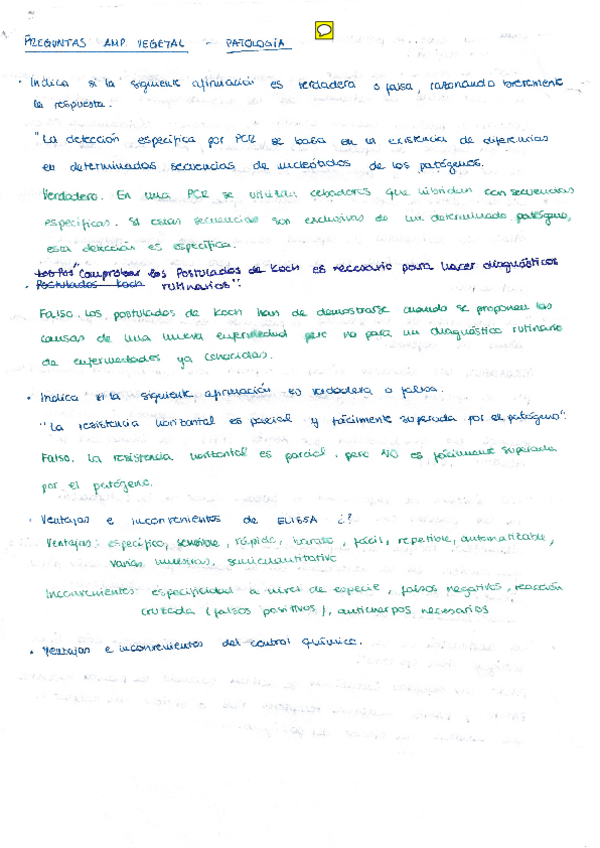 PREGUNTAS AMP. VEGETAL - PATOLOGÍA
· Indica si la siguiente afirmación es verdadera o falsa, razonando brevemente
la respuesta.
"La detección específica por PCR se basa en la existencia de diferencias
en determinadas secuencias de nucleótidos de los patógenos.
Verdadero. En una PCR se utilizan cebadores que hibridan con secuencias
específicas. Si estas secuencias son exclusivas de un determinado patógeno,
esta detección es específica.
"Comprobar los Postulados de Koch es necesario para hacer diagnósticos
· Postulados Koch rutinarios".
Falso. Los postulados de Koch han de demostrarse cuando se proponen las
causas de una nueva enfermedad pero no para un diagnóstico rutinario
de enfermedades ya conocidas.
· Indica si la siguiente afirmación es verdadera o falsa.
"La resistencia horizontal es parcial y fácilmente superada por el patógeno".
Falso. La resistencia horizontal es parcial, pero NO es fácilmente superada
por el patógeno.
· Ventajas e inconvenientes de ELISSA ¿?
Ventajas: específico, sensible, rápida, barato, fácil, repetible, automatizable,
varias muestras, semicuantitativo
Inconvenientes: especificidad a nivel de especie, falsos negativos, reacción
cruzada (falsos positivos), anticuerpos necesarios
· Ventajas e inconvenientes del control químico.